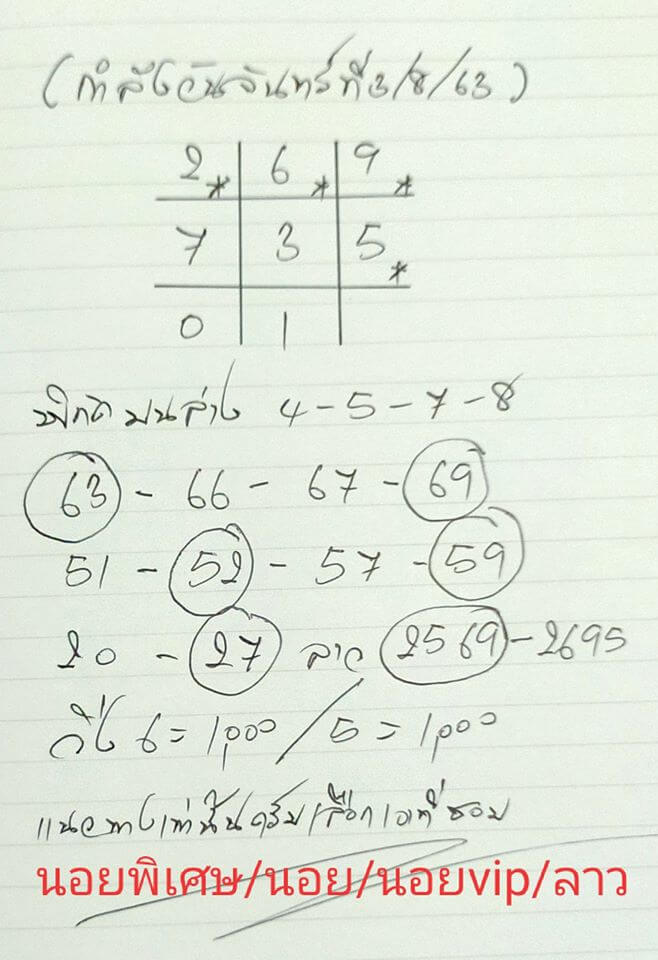 (กำลังวันจันทร์ที่3/8/63)
2* 6* 9*
7 3 5*
0 1
บนล่าง 4-5-7-8
63 - 66 - 67 - 69
51 - 52 - 57 - 59
20 - 27 ลาว 2569 - 2695
วิ่ง 6 = 1,000 / 5 = 1,000
แนวทางเท่านั้นครับ เลือกเอาที่ชอบ
นอยพิเศษ/นอย/นอยvip/ลาว